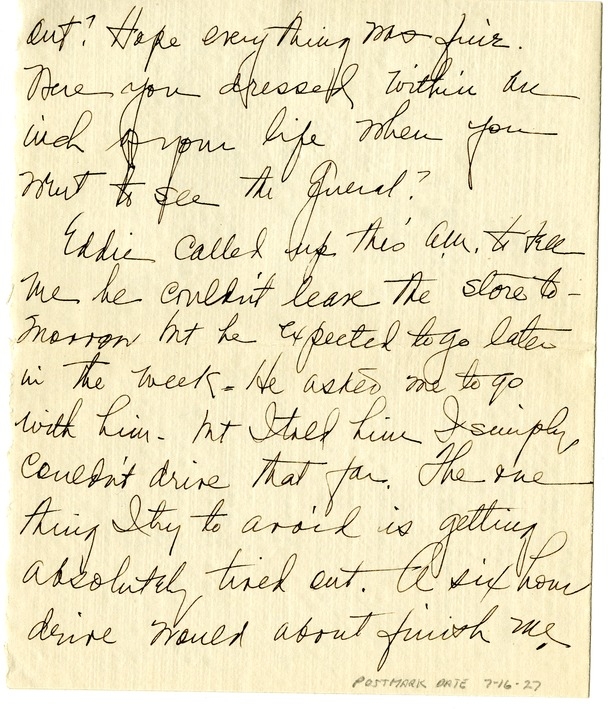 out? Hope everything was fine.
Were you dressed within an
inch of your life when you
went to see the General?
Eddie called up this a.m. to tell
me he couldn't leave the store to-
morrow but he expected to go later
in the week - He asked me to go
with him - but I told him I simply
couldn't drive that far. The one
thing I try to avoid is getting
absolutely tired out. A six hour
drive would about finish me.
POSTMARK DATE 7-16-27